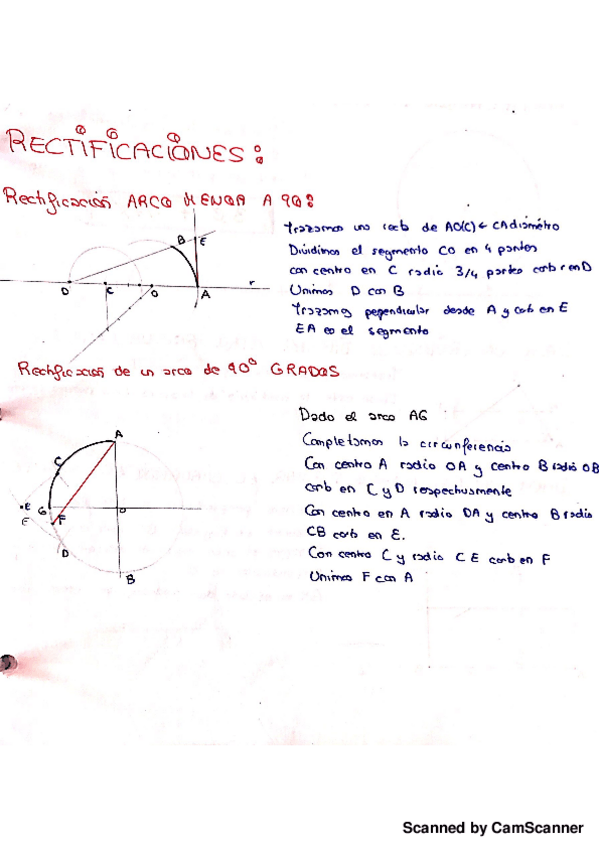 RECTIFICACIONES:
Rectificación ARCO MENOR A 90º:
Trazamos una recta de AO(C) ← CA diámetro
Dividimos el segmento CO en 4 partes
con centro en C radio 3/4 partes corta r en D
Unimos D con B
Trazamos perpendicular desde A y corta en E
EA es el segmento
B E
D C O A r
Rectificación de un arco de 90º GRADOS
Dado el arco AG
Completamos la circunferencia
Con centro A radio OA y centro B radio OB
corta en C y D respectivamente
Con centro en A radio DA y centro B radio
CB corta en E.
Con centro C y radio CE corta en F
Unimos F con A
A
C
E G O
E F
D
B
Scanned by CamScanner